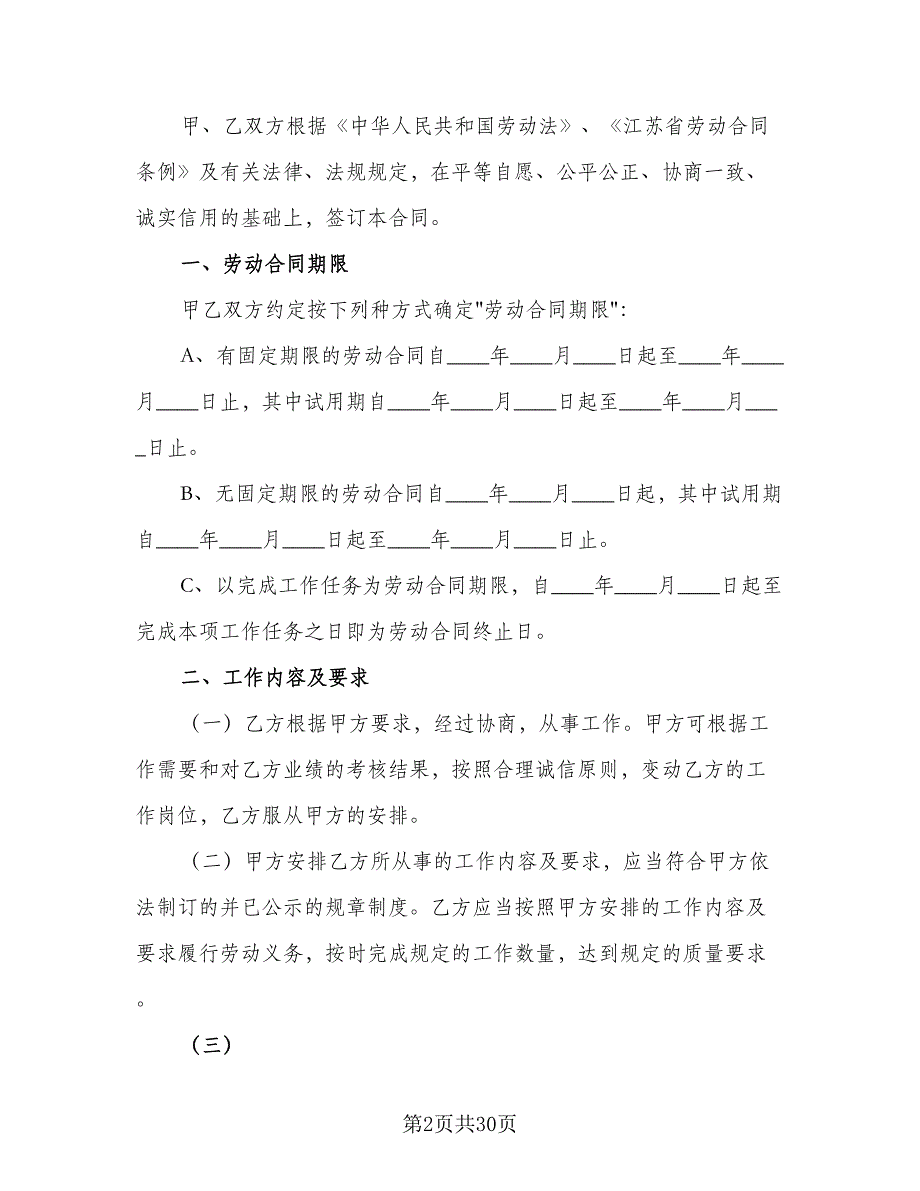 甲、乙双方根据《中华人民共和国劳动法》、《江苏省劳动合同
条例》及有关法律、法规规定，在平等自愿、公平公正、协商一致、
诚实信用的基础上，签订本合同。
一、劳动合同期限
甲乙双方约定按下列种方式确定"劳动合同期限"：
A、有固定期限的劳动合同自____年____月____日起至____年____
月____日止，其中试用期自____年____月____日起至____年____月___
_日止。
B、无固定期限的劳动合同自____年____月____日起，其中试用期
自____年____月____日起至____年____月____日止。
C、以完成工作任务为劳动合同期限，自____年____月____日起至
完成本项工作任务之日即为劳动合同终止日。
二、工作内容及要求
（一）乙方根据甲方要求，经过协商，从事工作。甲方可根据工
作需要和对乙方业绩的考核结果，按照合理诚信原则，变动乙方的工
作岗位，乙方服从甲方的安排。
（二）甲方安排乙方所从事的工作内容及要求，应当符合甲方依
法制订的并已公示的规章制度。乙方应当按照甲方安排的工作内容及
要求履行劳动义务，按时完成规定的工作数量，达到规定的质量要求
。
（三）
第2页共30页